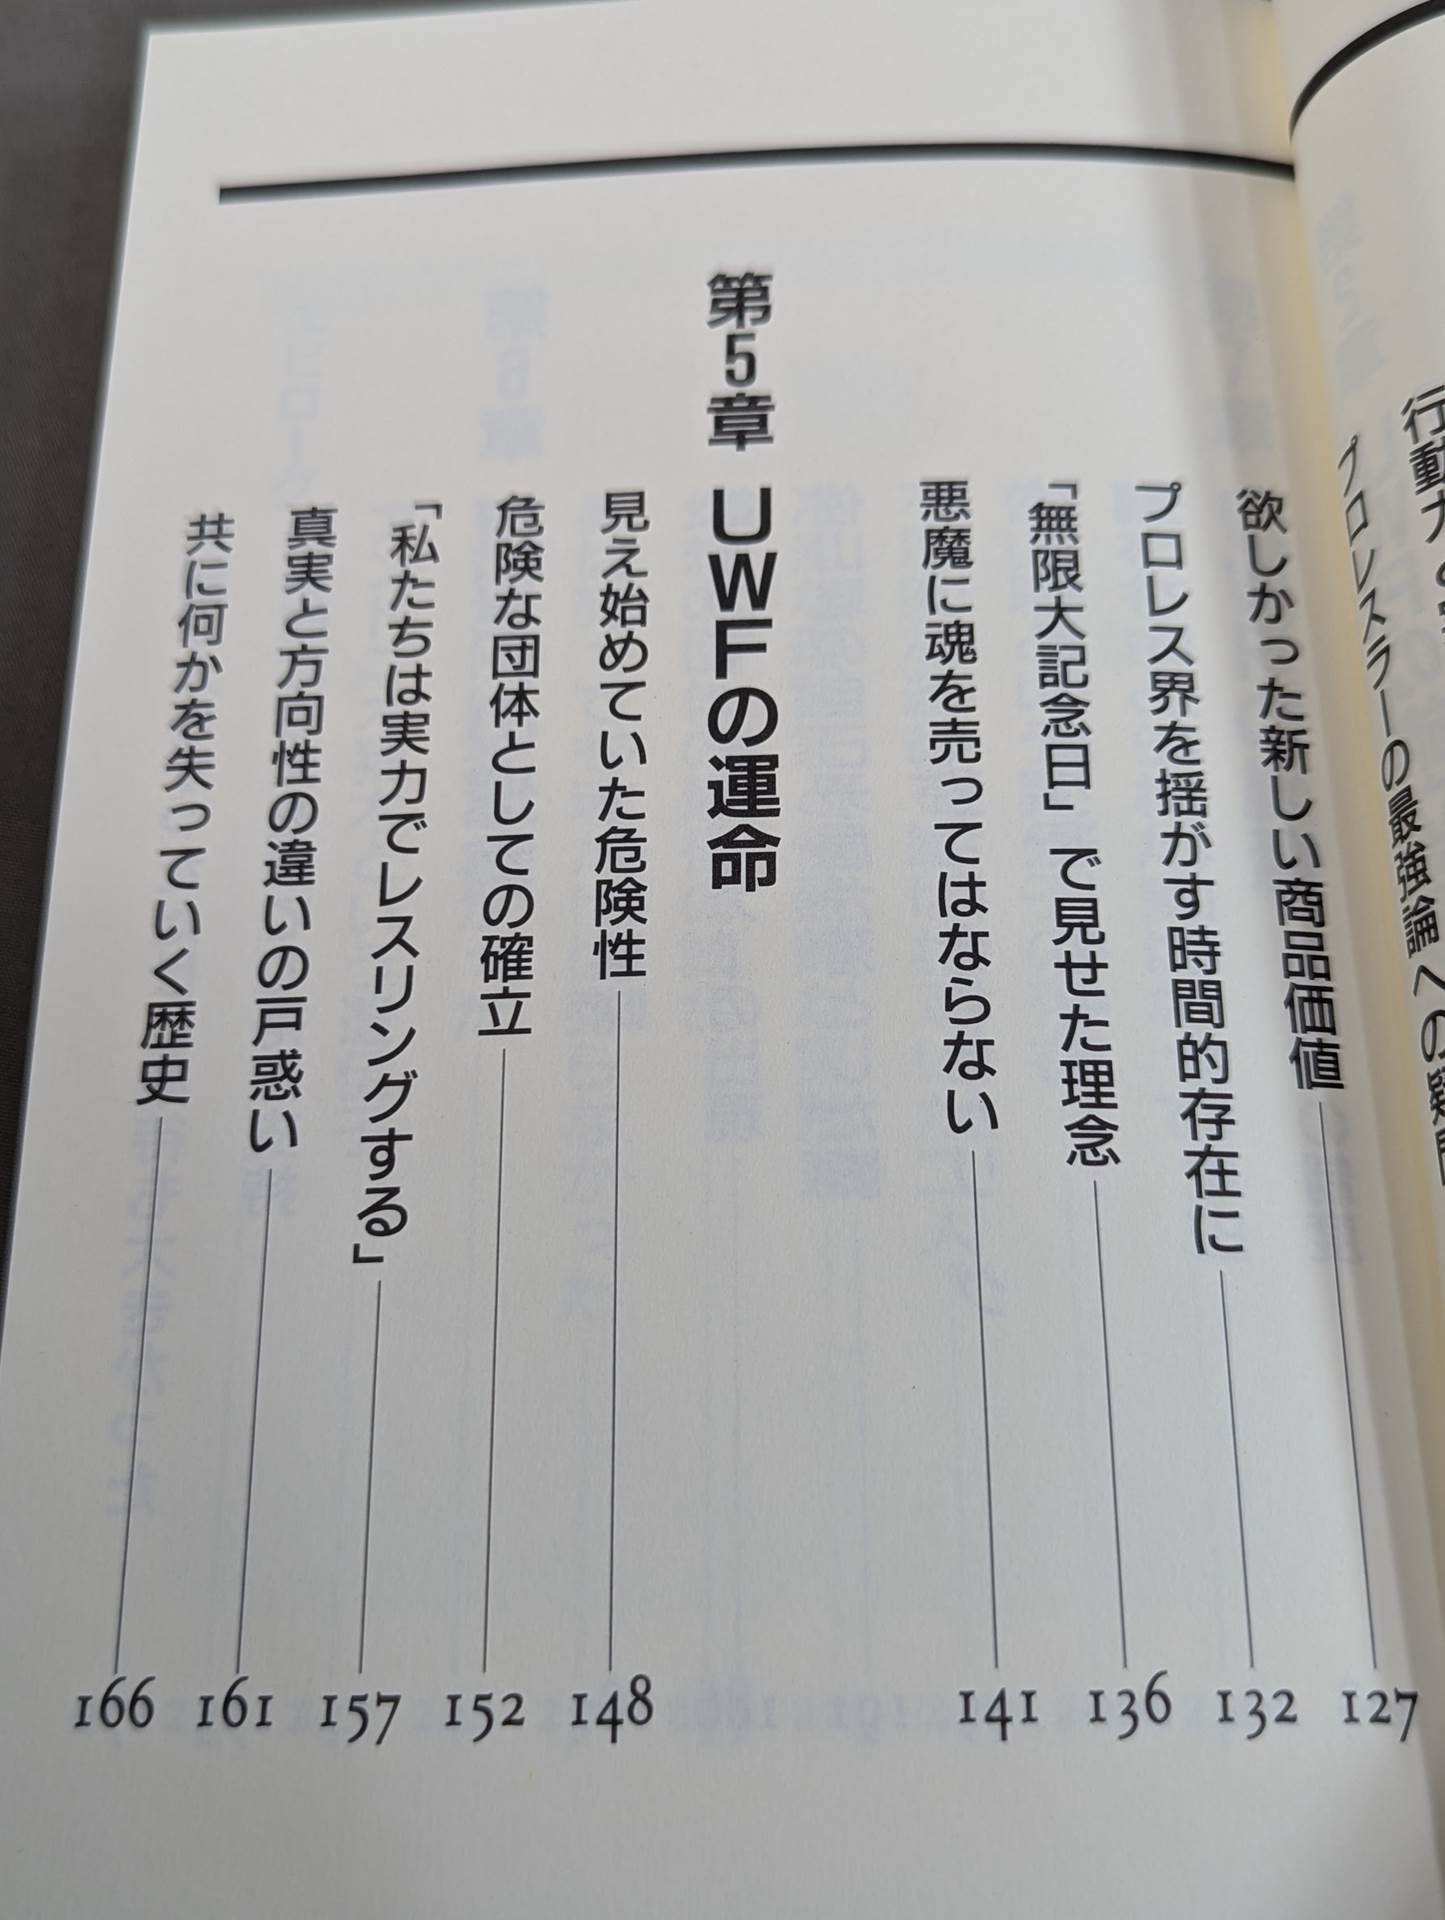 プロレスラーの最強論への疑問
欲しかった新しい商品価値 127
プロレス界を揺がす時間的存在に 132
「無限大記念日」で見せた理念 136
悪魔に魂を売ってはならない 141
第5章 UWFの運命
見え始めていた危険性 148
危険な団体としての確立 152
「私たちは実力でレスリングする」 157
真実と方向性の違いの戸惑い 161
共に何かを失っていく歴史 166